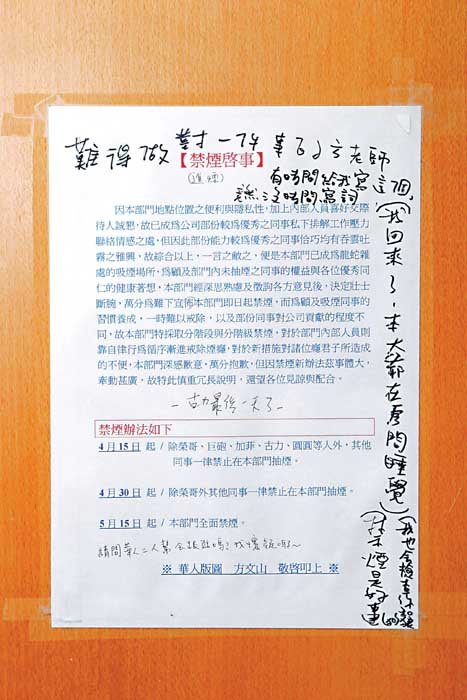 難得做對一件事了
方老師
【禁煙啓事】
有時間給我寫這個,
沒時間寫詞
因本部門地點位置之便利與隱私性，加上內部人員喜好交際
待人誠懇，故已成為公司部份較為優秀之同事私下排解工作壓力
聯絡情感之處，但因此部份能力較為優秀之同事恰巧均有吞雲吐
霧之雅興，故綜合以上，一言之敝之，便是本部門已成為龍蛇雜
處的吸煙場所，為顧及部門內未抽煙之同事的權益與各位優秀同
仁的健康著想，本部門經深思熟慮及徵詢各方意見後，決定壯士
斷腕，萬分為難下宣佈本部門即日起禁煙，而為顧及吸煙同事的
習慣養成，一時難以戒除，以及部份同事對公司貢獻的程度不
同，故本部門特採取分階段與分階級禁煙，對於部門內部人員則
靠自律行為循序漸進戒除煙癮，對於新措施對諸位癮君子所造成
的不便，本部門深感歉意，萬分抱歉，但因禁煙新辦法茲事體大，
牽動甚廣，故特此慎重冗長說明，還望各位見諒與配合。
－古力最後一天了－
禁煙辦法如下
4 月 15 日 起 / 除榮哥、巨砲、加菲、古力、圓圓等人外，其他
同事一律禁止在本部門抽煙。
4 月 30 日 起 / 除榮哥外其他同事一律禁止在本部門抽煙。
5 月 15 日 起 / 本部門全面禁煙。
※ 華人版圖 方文山 敬啓叩上 ※
(我回來了，本大爺在房間睡覺)
(禁煙是好事)